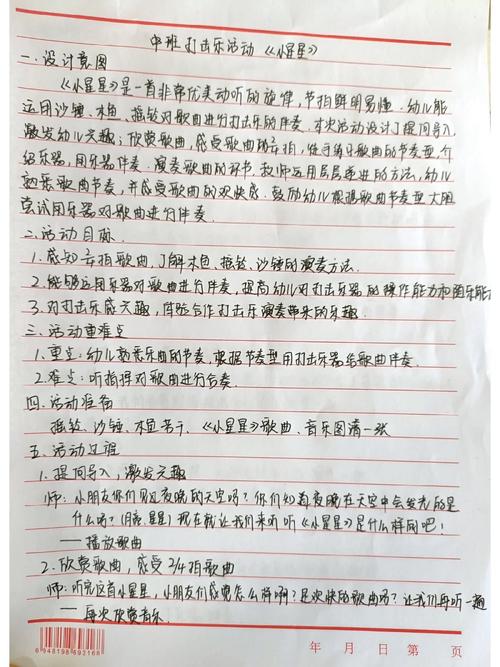 中班打击乐活动《小星星》
一.设计意图
《小星星》是一首非常优美动听的旋律,节拍鲜明易懂.幼儿能
运用沙锤、木鱼、摇铃对歌曲进行打击乐的伴奏。本次活动设计了提问导入,
激发幼儿兴趣;欣赏歌曲,感受歌曲的节拍,歌曲的节奏型,介
绍乐器,用乐器伴奏、演奏歌曲的环节,教师运用层层递进的方法,幼儿
熟乐歌曲节奏,并感受歌曲的欢快感.鼓励幼儿根据歌曲节奏型大胆
尝试用乐器对歌曲进行伴奏.
二.活动目标.
1.感知二拍歌曲,了解木鱼、摇铃、沙锤的演奏方法.
2.能够运用乐器对歌曲进行伴奏,提高幼儿对打击乐器的操作能力和
3.对打击乐感兴趣,体验合作打击乐演奏带来的乐趣.
三.活动重难点
1.重点:幼儿熟悉乐曲的节奏.根据节奏型用打击乐器给歌曲伴奏.
2.难点:听指挥对歌曲进行合奏.
四.活动准备
摇铃、沙锤、木鱼若干、《小星星》歌曲、音乐图谱一张
五.活动过程
1.提问导入,激发兴趣
师:小朋友你们见过夜晚的天空吗?你们知道夜晚在天空中会发光的是
什么吗?(月亮、星星)现在就让我们来听听《小星星》是什么样的吧!
——播放歌曲
2.欣赏歌曲,感受2/4拍歌曲
师:听完这首小星星,小朋友们感觉怎么样啊?是欢快的歌曲吗?让我们再听一遍
——再次欣赏音乐.
6948198693168
年 月 日 第 页